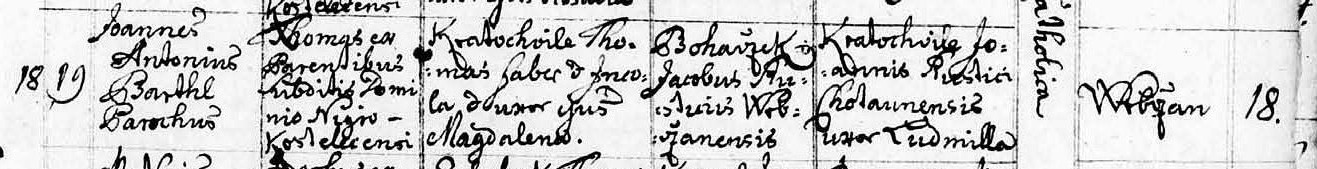 Kostelecensi
18 19 Joannes
Antonius
Barthl
Parochus
Thomas ex
Parentibus
subditis Domi
nio Nigro-
Kostelecensi
Kratochvile Tho:
:mas faber & Inco:
la & uxor ejus
Magdalena.
Bohaczek
Jacobus Ru:
:sticus Wrb:
:czanensis
Kratochvile Jo:
:annis Rustici
Chotaunensis
uxor Ludmilla
atholica
Wrbczan
18.